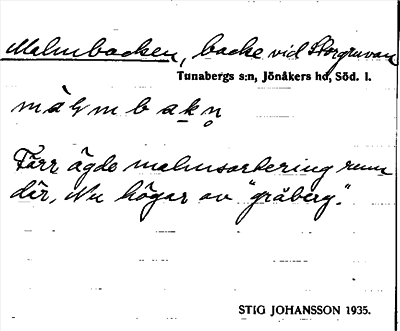 Malmbacken, backe vid Storgruvan
Tunabergs s:n, Jönåkers hd, Söd. l.
Förr ägde malmsortering rum
där, Nu högar av "gråberg".
STIG JOHANSSON 1935.